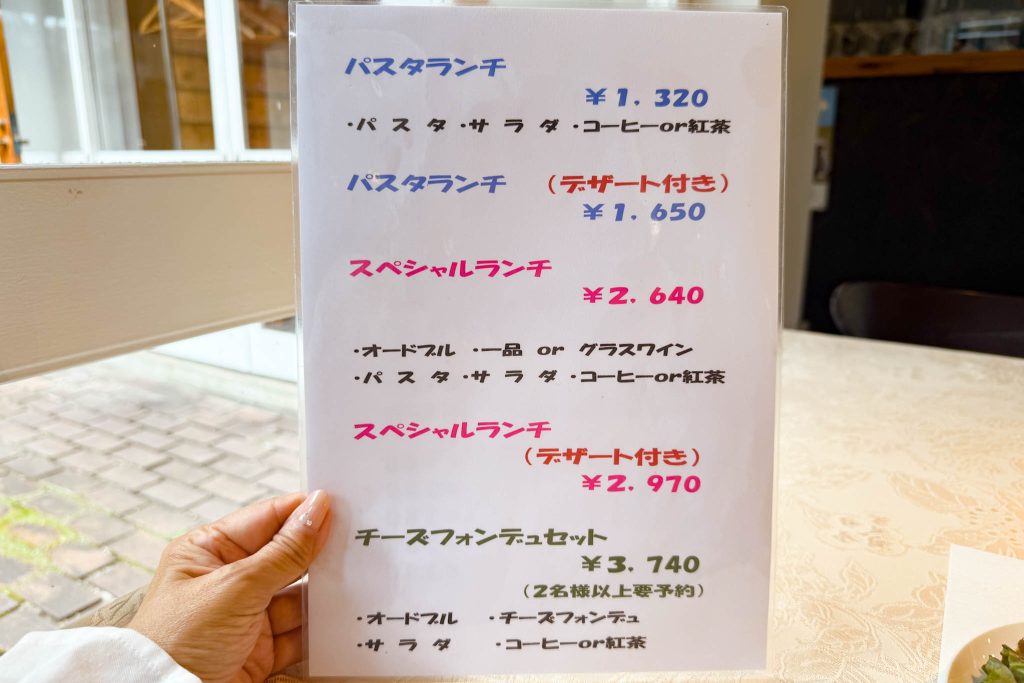 パスタランチ
￥1. 320
・パ ス タ ・サ ラ ダ ・コーヒーor紅茶
パスタランチ (デザート付き)
￥1. 650
スペシャルランチ
￥2. 640
・オードブル ・一品 or グラスワイン
・パ ス タ ・サ ラ ダ ・コーヒーor紅茶
スペシャルランチ
(デザート付き)
￥2. 970
チーズフォンデュセット
￥3. 740
(2名様以上要予約)
・オードブル ・チーズフォンデュ
・サ ラ ダ ・コーヒーor紅茶